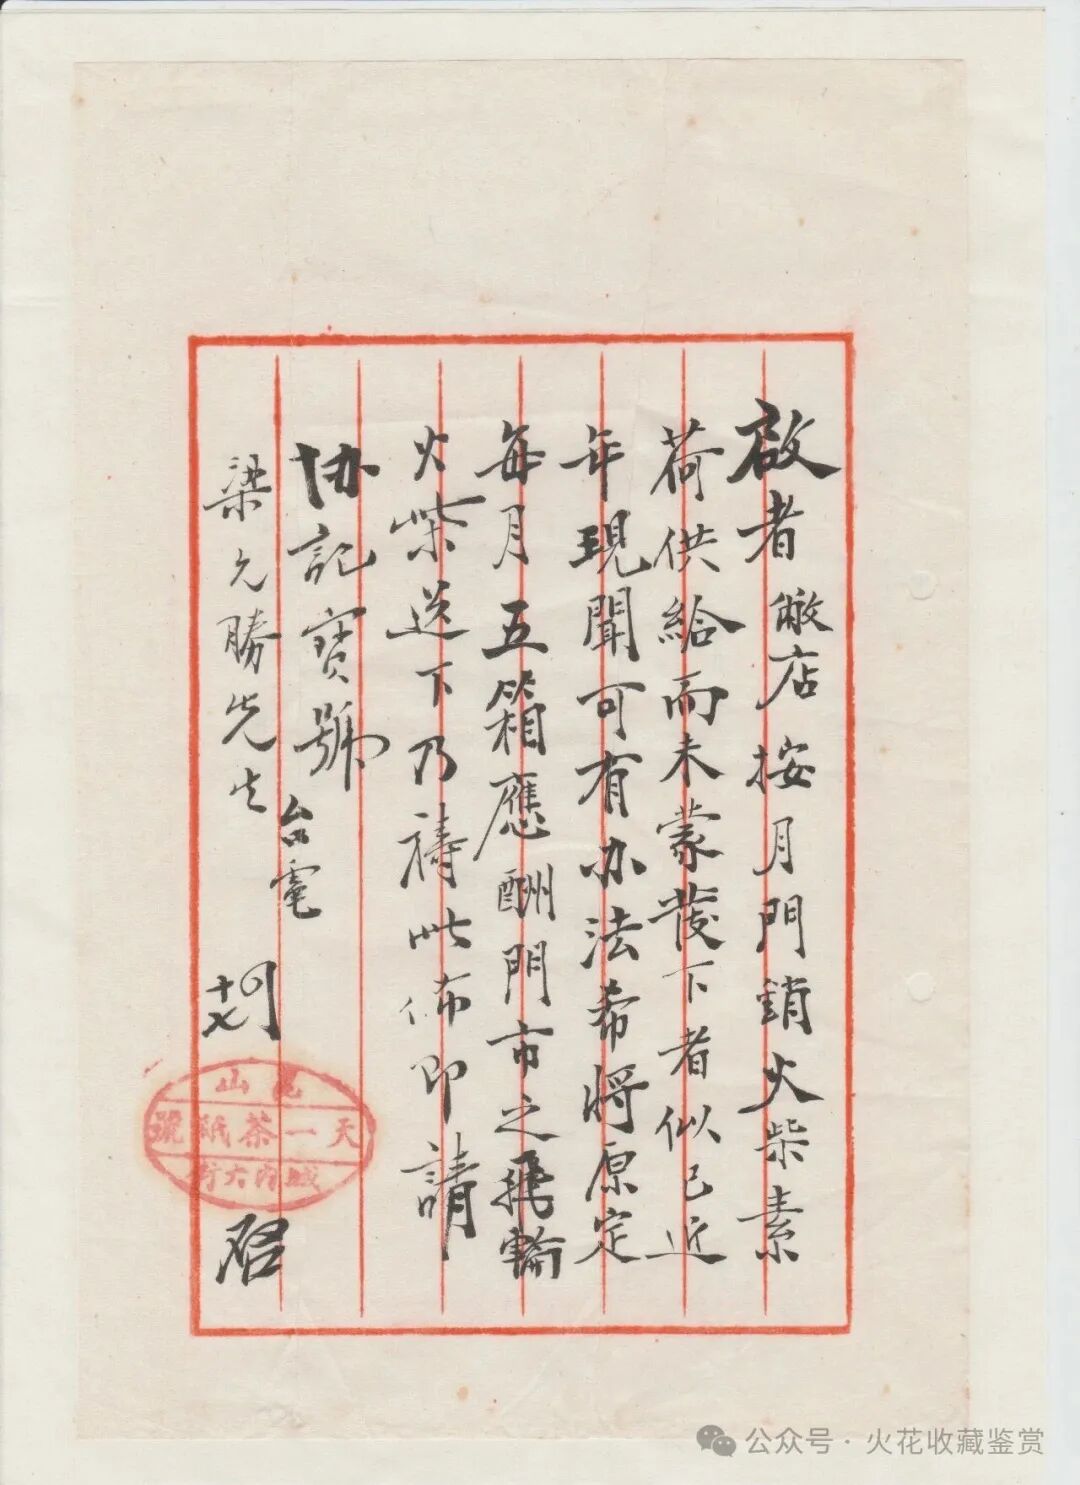 啟者敝店按月門銷火柴素
荷供給而未蒙發下者似已近
年現聞可有办法希將原定
每月五箱應酬門市之飛輪
火柴送下乃禱此佈即請
協記寶號
梁久勝先生
台電
啟
山
天一茶紙號
城內大街
公众号·火花收藏鉴赏